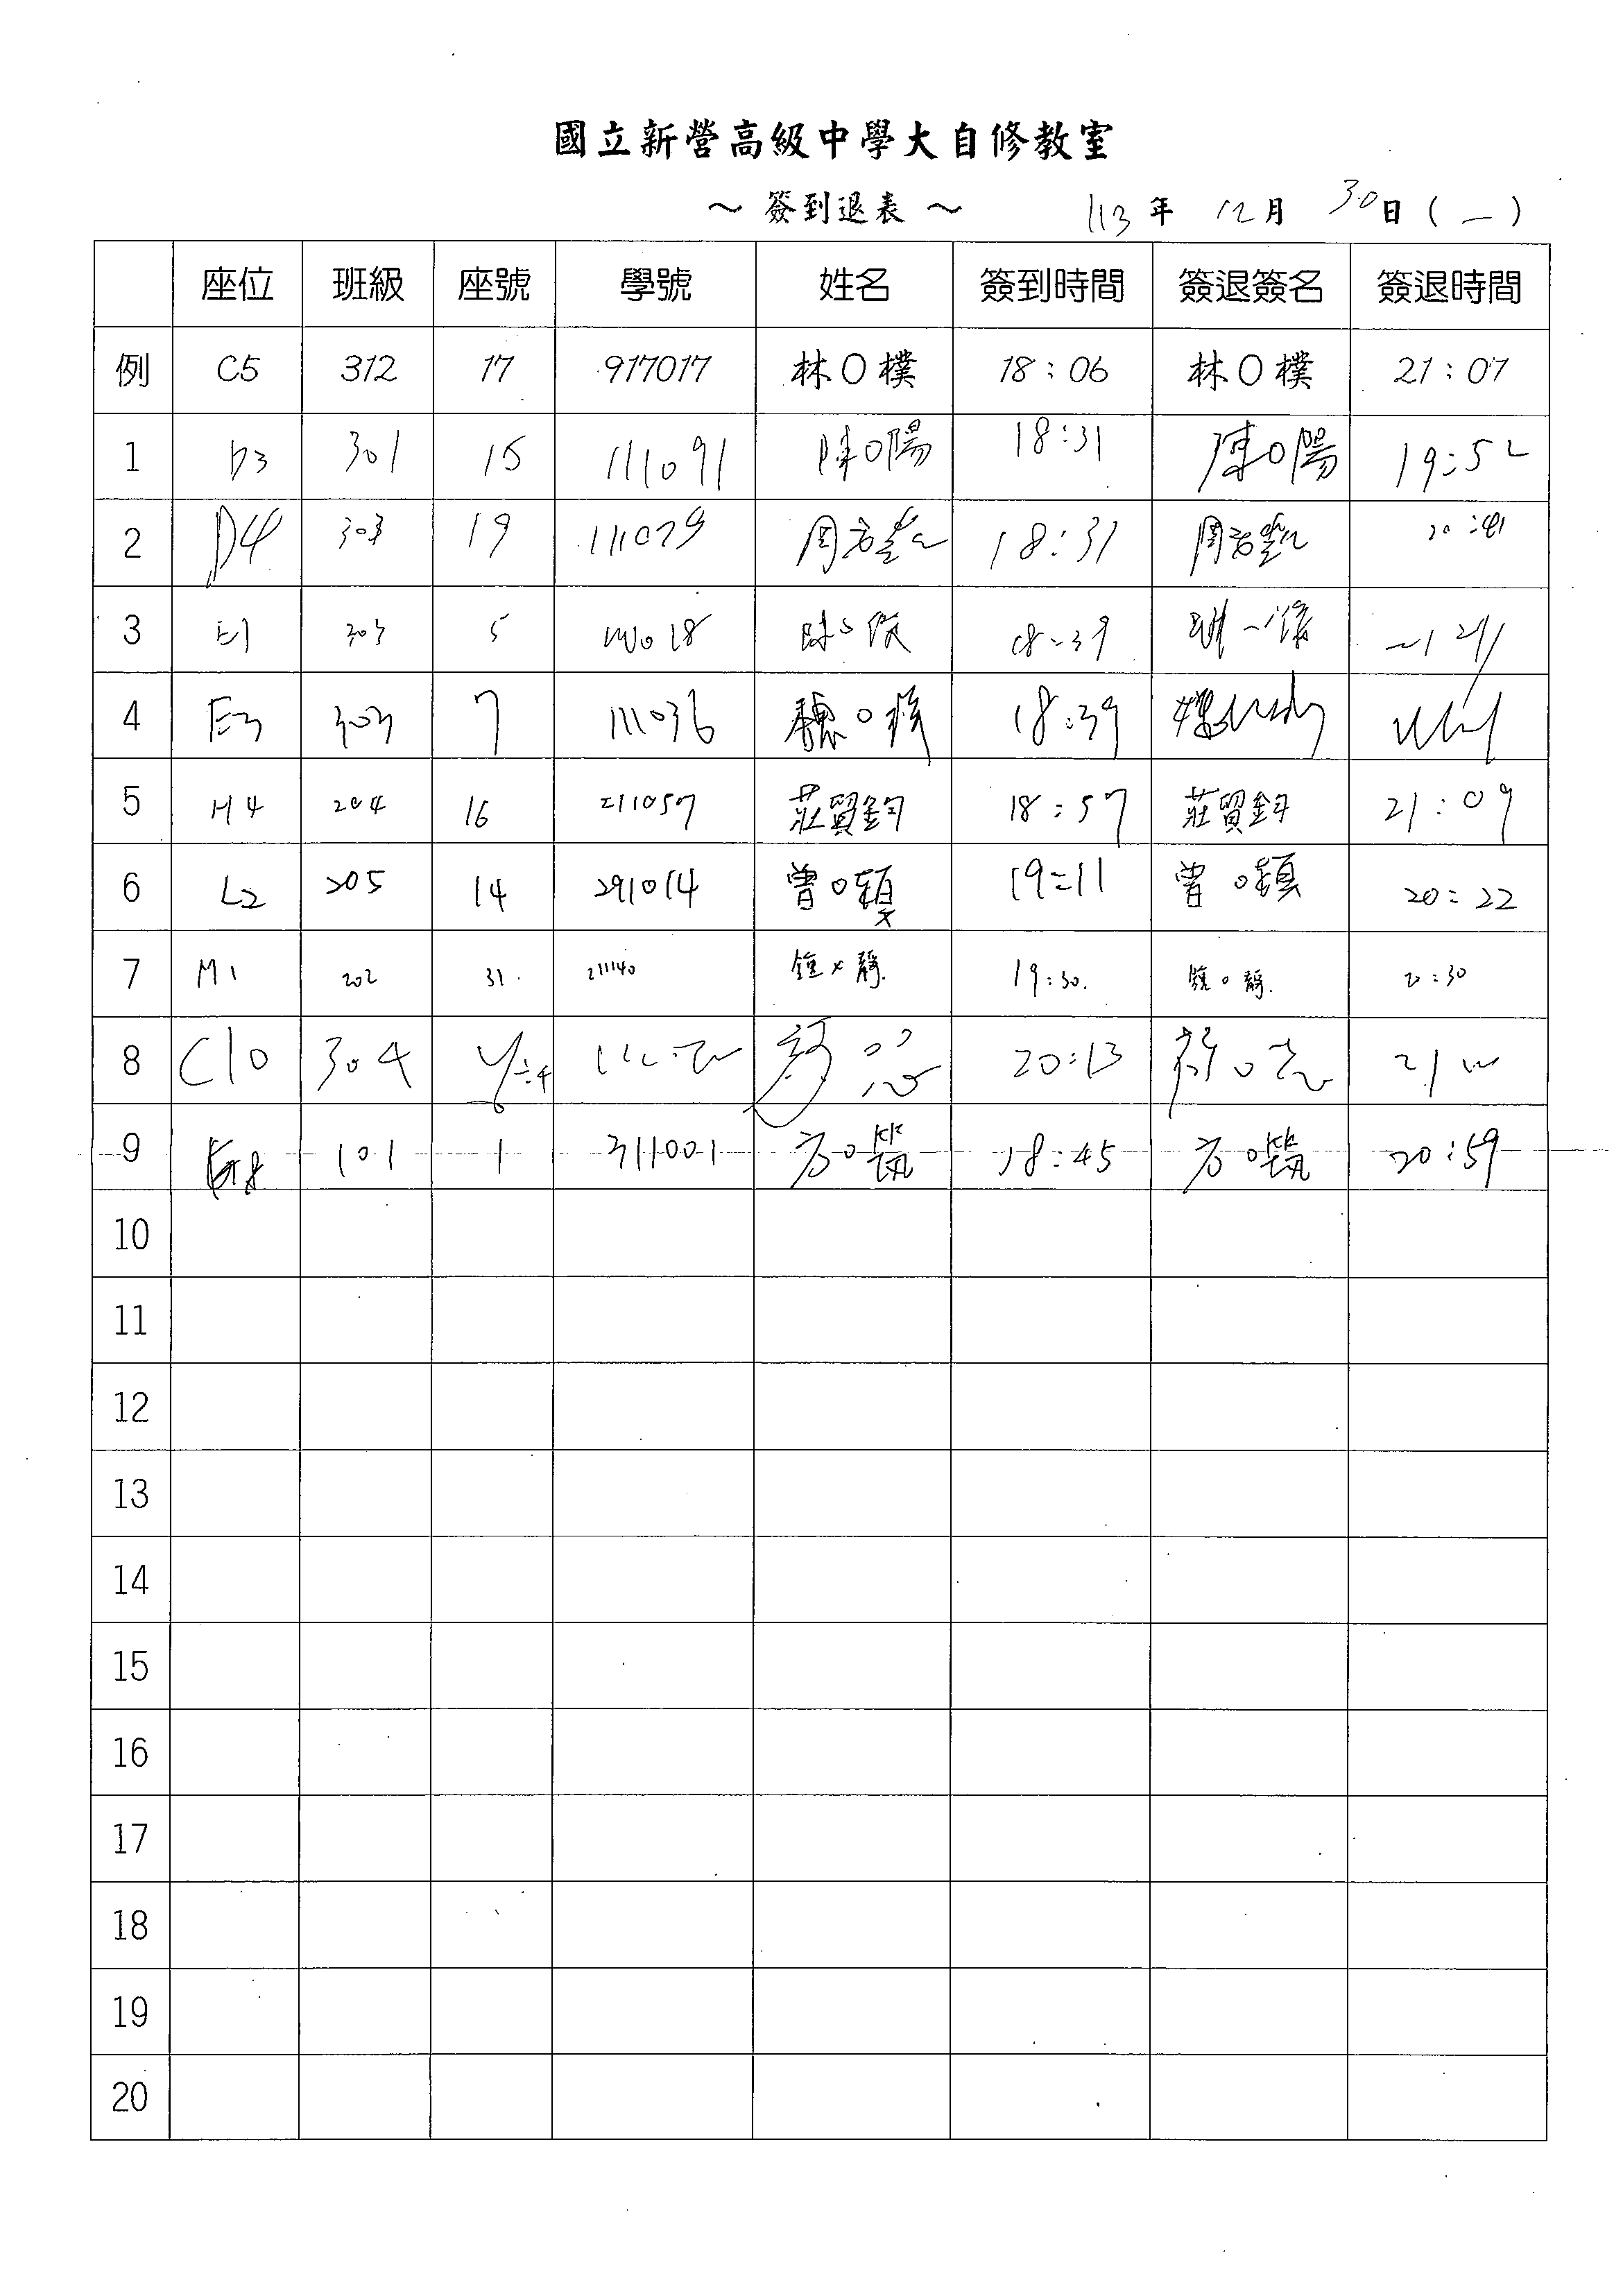 國立新營高級中學大自修教室
～ 簽到退表 ～ 113 年 12 月 30 日 ( 一 )
座位 班級 座號 學號 姓名 簽到時間 簽退簽名 簽退時間
例 C5 312 17 917017 林O樸 18:06 林O樸 21:07
1 D3 301 15 111091 陳O陽 18:31 陳O陽 19:52
2 D4 303 19 111079 周 18:31 周 20:41
3 E1 303 5 18:39
4 E3 303 7 111036 18:39
5 H4 204 16 211057 莊貿鈞 18:57 莊貿鈞 21:09
6 L2 205 14 291014 曾O穎 19:11 曾O穎 20:22
7 M1 202 31. 211140 鍾×靜. 19:30. 鍾O靜. 20:30
8 C10 304 20:13 21
9 101 1 311001 方O 18:45 方O 20:59
10
11
12
13
14
15
16
17
18
19
20